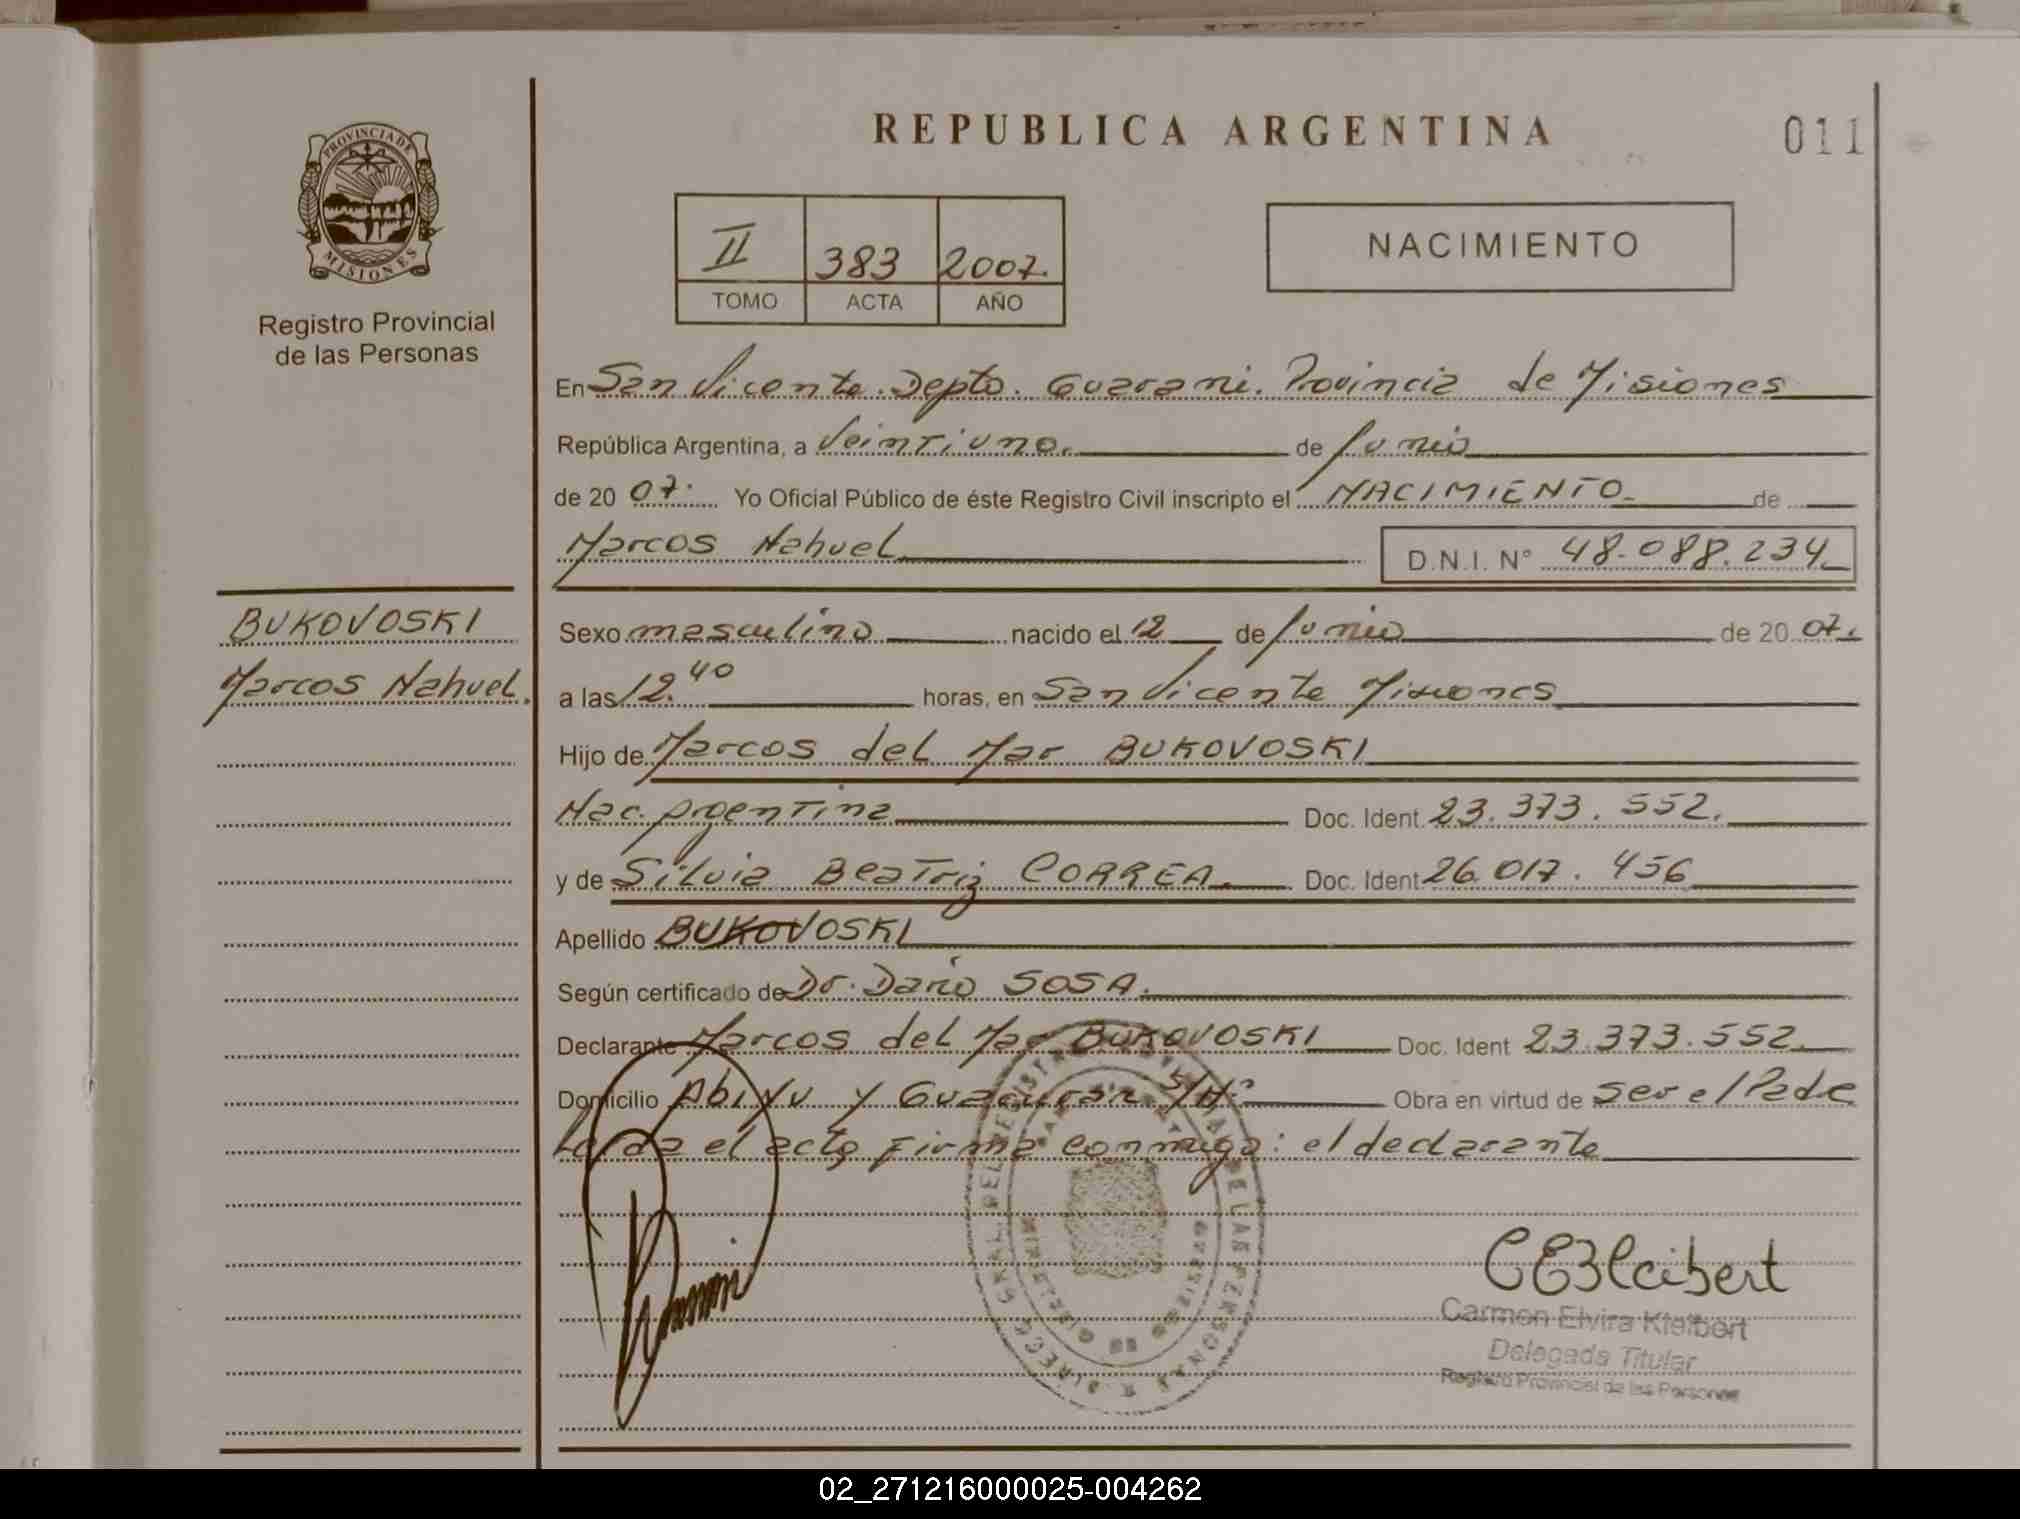 REPUBLICA ARGENTINA
011
PROVINCIA DE
MISIONES
Registro Provincial
de las Personas
II 383 2007.
TOMO ACTA AÑO
NACIMIENTO
En San Vicente. Depto. Guarani. Provincia de Misiones
República Argentina, a Veintiuno. de Junio
de 20 07. Yo Oficial Público de éste Registro Civil inscripto el NACIMIENTO de
Marcos Nahuel D.N.I. N° 48.088.234
BUKOVOSKI
Marcos Nahuel.
Sexo masculino nacido el 12 de Junio de 20 07.
a las 12.40 horas, en San Vicente Misiones
Hijo de Marcos del Mar BUKOVOSKI
Nac. Argentina Doc. Ident. 23.373.552.
y de Silvia Beatriz CORREA. Doc. Ident 26.017.456
Apellido BUKOVOSKI
Según certificado de Dr. Dario SOSA.
Declarante Marcos del Mar BUKOVOSKI Doc. Ident 23.373.552.
Domicilio y S/N° Obra en virtud de ser el Padre
el acto Firma conmigo: el declarante
CEKleibert
Carmen Elvira Kleibert
Delegada Titular
Registro Provincial de las Personas
02_271216000025-004262